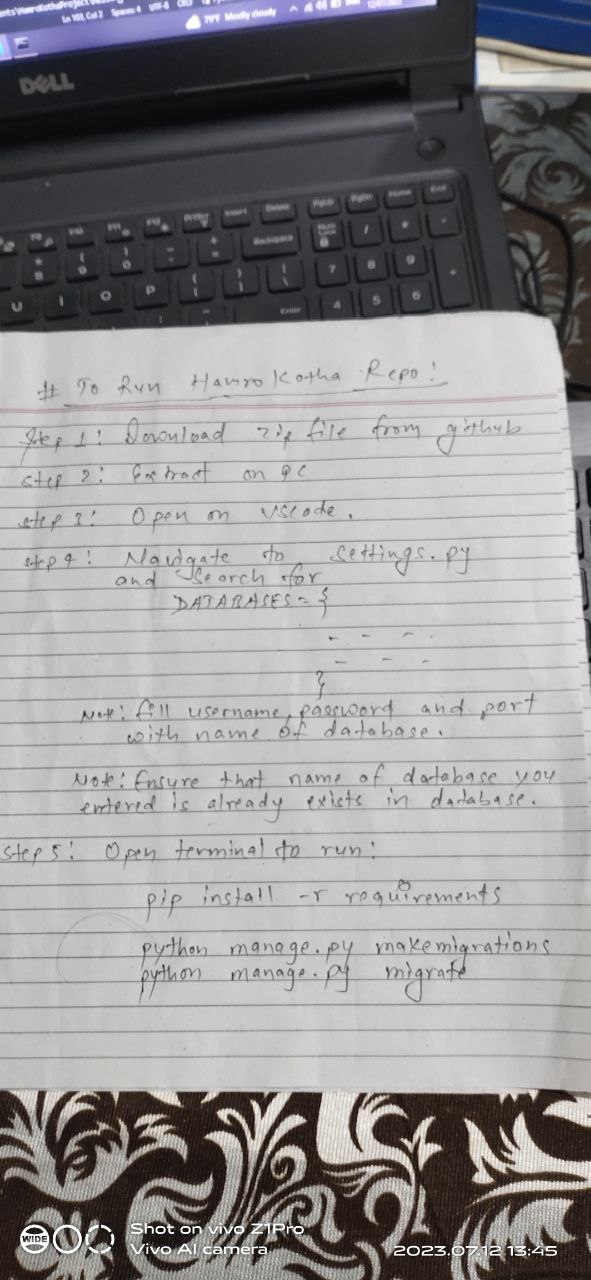 Ln 103, Col 2 Spaces: 4 UTF-8
79°F Mostly cloudy
DELL
Insert Delete PgUp PgDn Home End
Backspace
Num Lock / * -
7 8 9 +
U I O P
Enter 4 5 6
# To Run HamroKotha Repo!
Step 1: Download zip file from github
Step 2: Extract on PC
Step 3: Open on vscode.
Step 4: Navigate to settings.py
and search for
DATABASES = {
- - - -
- - -
}
Note: fill username, password and port
with name of database.
Note: Ensure that name of database you
entered is already exists in database.
Step 5: Open terminal to run:
pip install -r requirements
python manage.py makemigrations
python manage.py migrate
WIDE
Shot on vivo Z1Pro
Vivo AI camera
2023.07.12 13:45